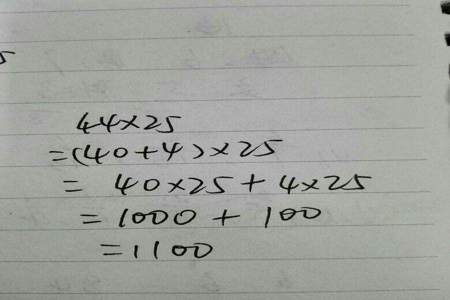 44×25
=(40+4)×25
= 40×25+4×25
= 1000 + 100
=1100